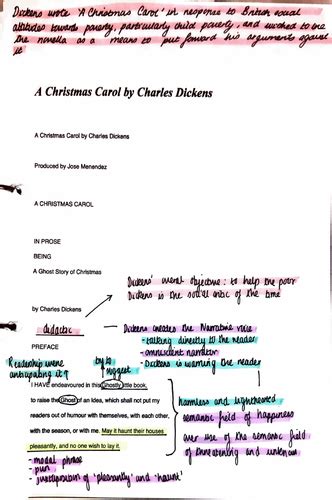 Dickens wrote 'A Christmas Carol' in response to British social
attitudes towards poverty, particularly child poverty, and wished to use
the novella as a means to put forward his arguments against
it
A Christmas Carol by Charles Dickens
A Christmas Carol by Charles Dickens
Produced by Jose Menendez
A CHRISTMAS CAROL
IN PROSE
BEING
A Ghost Story of Christmas
Dickens' moral objective : to help the poor
Dickens is the social critic of the time
by Charles Dickens
didactic
Dickens creates the Narrative voice
- talking directly to the reader
- omniscient narrator
- Dickens is warning the reader
PREFACE
Readership were
anticipating it
suggest
I HAVE endeavoured in this Ghostly little book,
to raise the Ghost of an Idea, which shall not put my
readers out of humour with themselves, with each other,
with the season, or with me. May it haunt their houses
pleasantly, and no one wish to lay it.
harmless and lighthearted
semantic field of happiness
over use of the semantic field
of threatening and unknown
- modal phrase
- pun
- juxtaposition of 'pleasantly' and 'haunt'